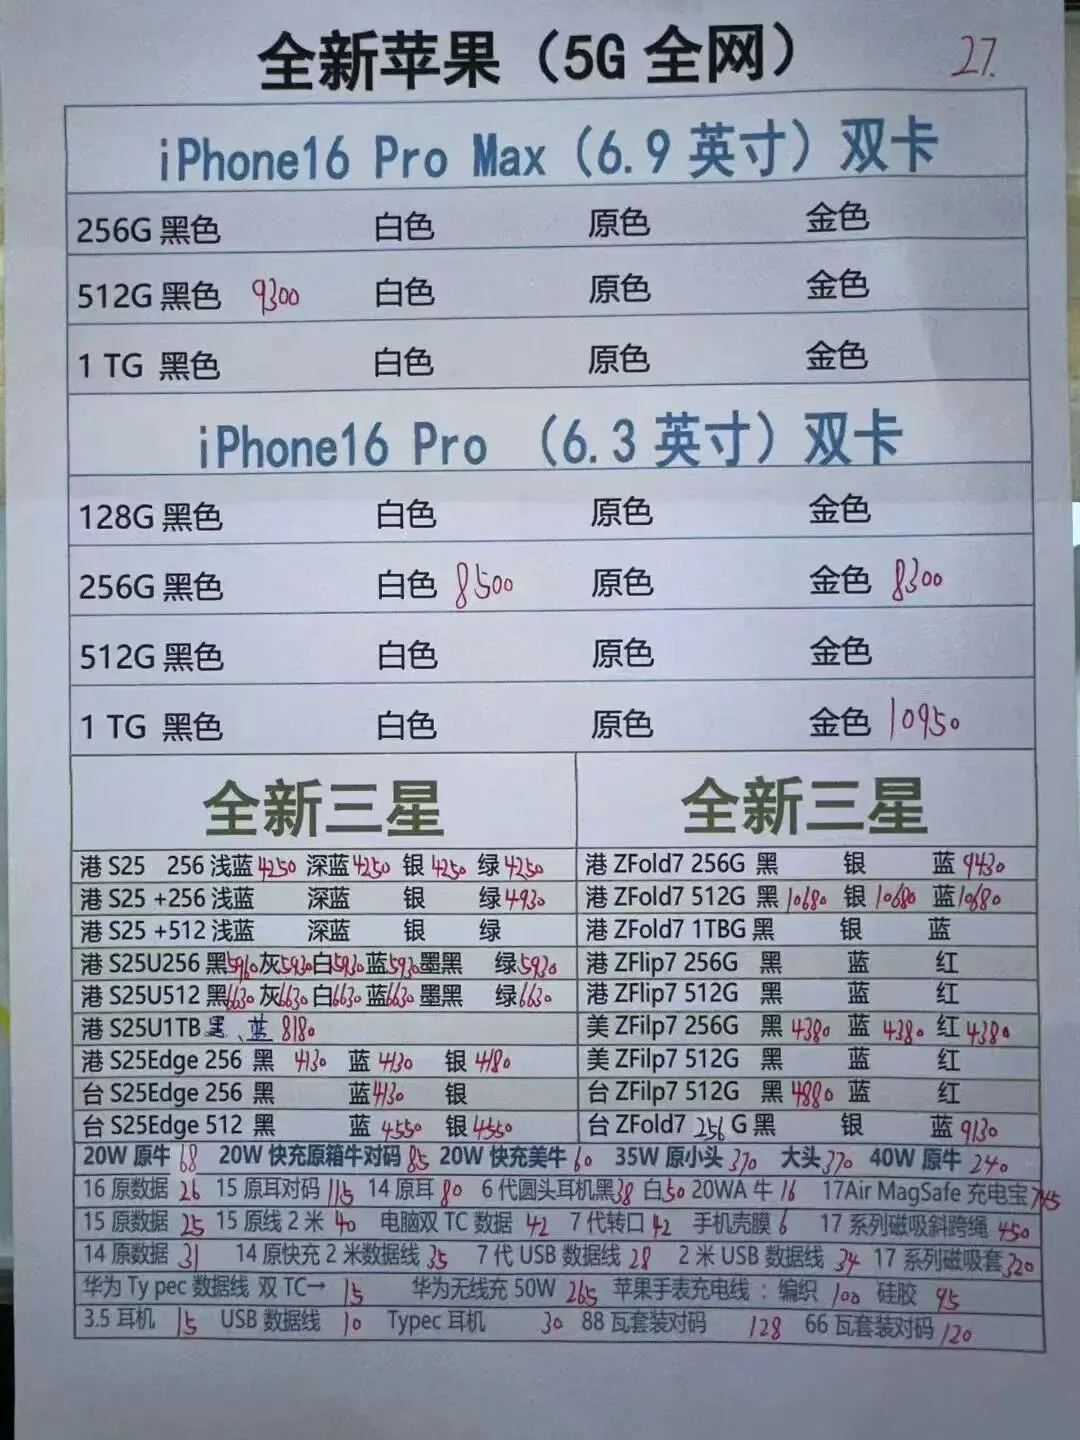 全新苹果（5G 全网） 27.
iPhone16 Pro Max（6.9 英寸）双卡
256G 黑色 白色 原色 金色
512G 黑色 9300 白色 原色 金色
1 TG 黑色 白色 原色 金色
iPhone16 Pro （6.3 英寸）双卡
128G 黑色 白色 原色 金色
256G 黑色 白色 8500 原色 金色 8300
512G 黑色 白色 原色 金色
1 TG 黑色 白色 原色 金色 10950
全新三星 全新三星
港 S25 256 浅蓝 4250 深蓝 4250 银 4250 绿 4250 港 ZFold7 256G 黑 银 蓝 9430
港 S25 +256 浅蓝 深蓝 银 绿 4930 港 ZFold7 512G 黑 10680 银 10680 蓝 10680
港 S25 +512 浅蓝 深蓝 银 绿 港 ZFold7 1TBG 黑 银 蓝
港 S25U256 黑 5960 灰 5930 白 5930 蓝 5930 墨黑 绿 5930 港 ZFlip7 256G 黑 蓝 红
港 S25U512 黑 6630 灰 6630 白 6630 蓝 6630 墨黑 绿 6630 港 ZFlip7 512G 黑 蓝 红
港 S25U1TB 黑、蓝 8180 美 ZFilp7 256G 黑 4380 蓝 4380 红 4380
港 S25Edge 256 黑 4130 蓝 4130 银 4180 美 ZFilp7 512G 黑 蓝 红
台 S25Edge 256 黑 蓝 4130 银 台 ZFilp7 512G 黑 4880 蓝 红
台 S25Edge 512 黑 蓝 4550 银 4550 台 ZFold7 256 G 黑 银 蓝 9130
20W 原牛 68 20W 快充原箱牛对码 85 20W 快充美牛 60 35W 原小头 370 大头 370 40W 原牛 240
16 原数据 26 15 原耳对码 115 14 原耳 80 6 代圆头耳机黑 38 白 50 20WA 牛 16 17Air MagSafe 充电宝 745
15 原数据 25 15 原线 2 米 40 电脑双 TC 数据 42 7 代转口 42 手机壳膜 6 17 系列磁吸斜跨绳 450
14 原数据 31 14 原快充 2 米数据线 35 7 代 USB 数据线 28 2 米 USB 数据线 34 17 系列磁吸套 320
华为 Ty pec 数据线 双 TC→ 15 华为无线充 50W 265 苹果手表充电线：编织 100 硅胶 95
3.5 耳机 15 USB 数据线 10 Typec 耳机 30 88 瓦套装对码 128 66 瓦套装对码 120